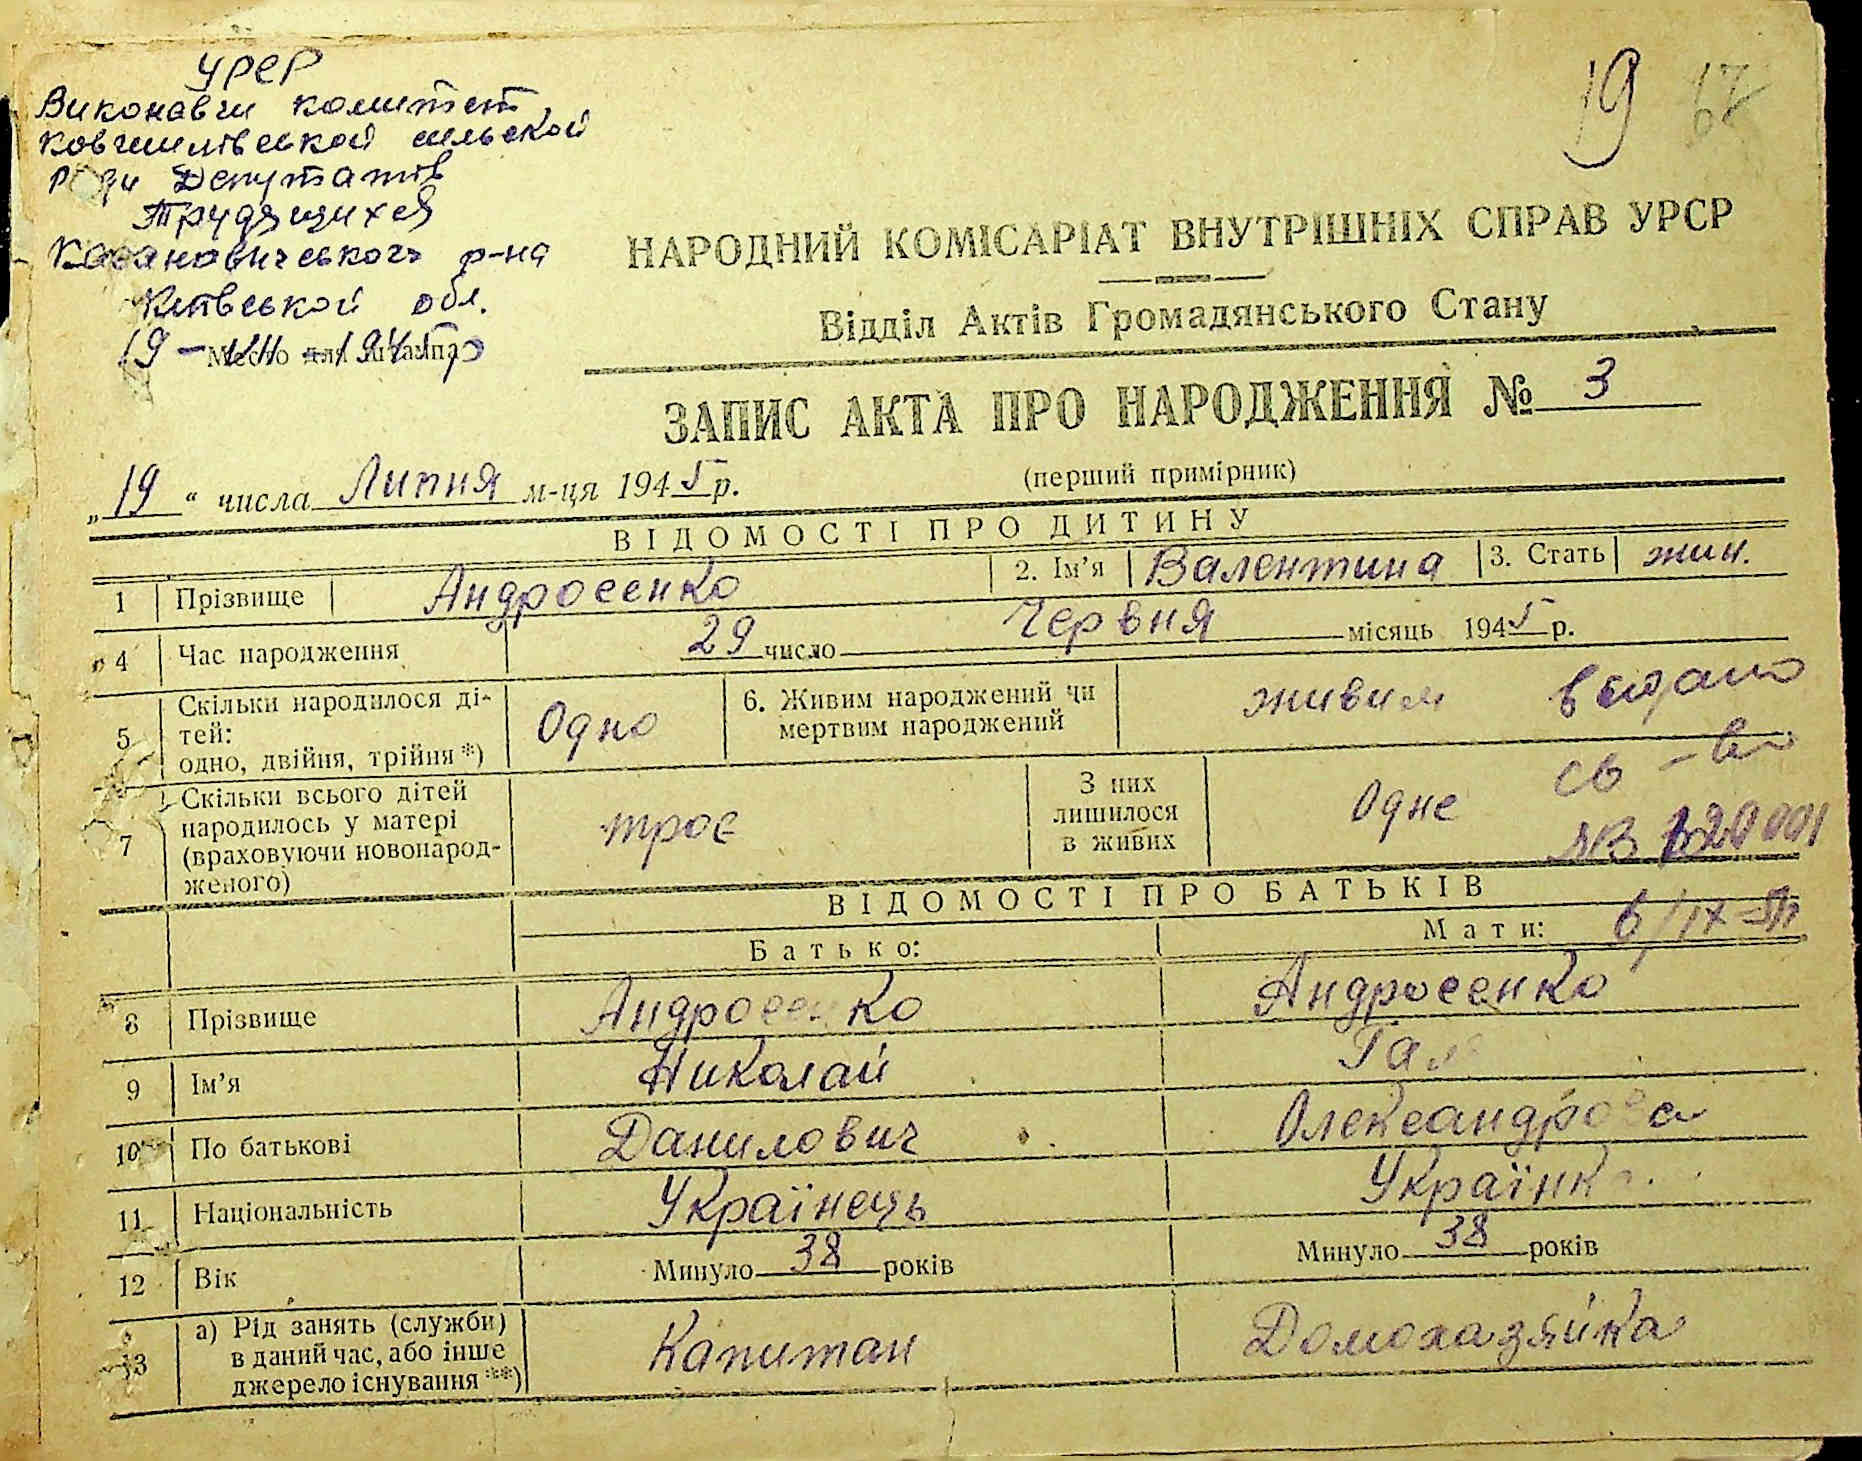 УРСР
Виконавчи комитет
Ковшилівськой сільськой
Ради Депутатів
Трудящихся
Кагановичського р-на
Київськой обл.
Место для штампа
19
НАРОДНИЙ КОМІСАРІАТ ВНУТРІШНІХ СПРАВ УРСР
Відділ Актів Громадянського Стану
ЗАПИС АКТА ПРО НАРОДЖЕННЯ № 3
(перший примірник)
„19“ числа Липня м-ця 1945 р.
ВІДОМОСТІ ПРО ДИТИНУ
1 Прізвище Андросенко 2. Ім’я Валентина 3. Стать жин.
4 Час народження 29 число Червня місяць 1945 р.
5 Скільки народилося ді-
тей:
одно, двійня, трійня *)
Одно
6. Живим народжений чи
мертвим народжений
живим
видано
св-во
7 Скільки всього дітей
народилось у матері
(враховуючи новонарод-
женого)
троє
З них
лишилося
в живих
Одне
ВІДОМОСТІ ПРО БАТЬКІВ
Батько: Мати:
8 Прізвище Андросенко Андросенко
9 Ім’я Николай
10 По батькові Данилович
11 Національність Українець Українк
12 Вік Минуло 38 років Минуло 38 років
13 а) Рід занять (служби)
в даний час, або інше
джерело існування **)
Капитан Домохазяйка